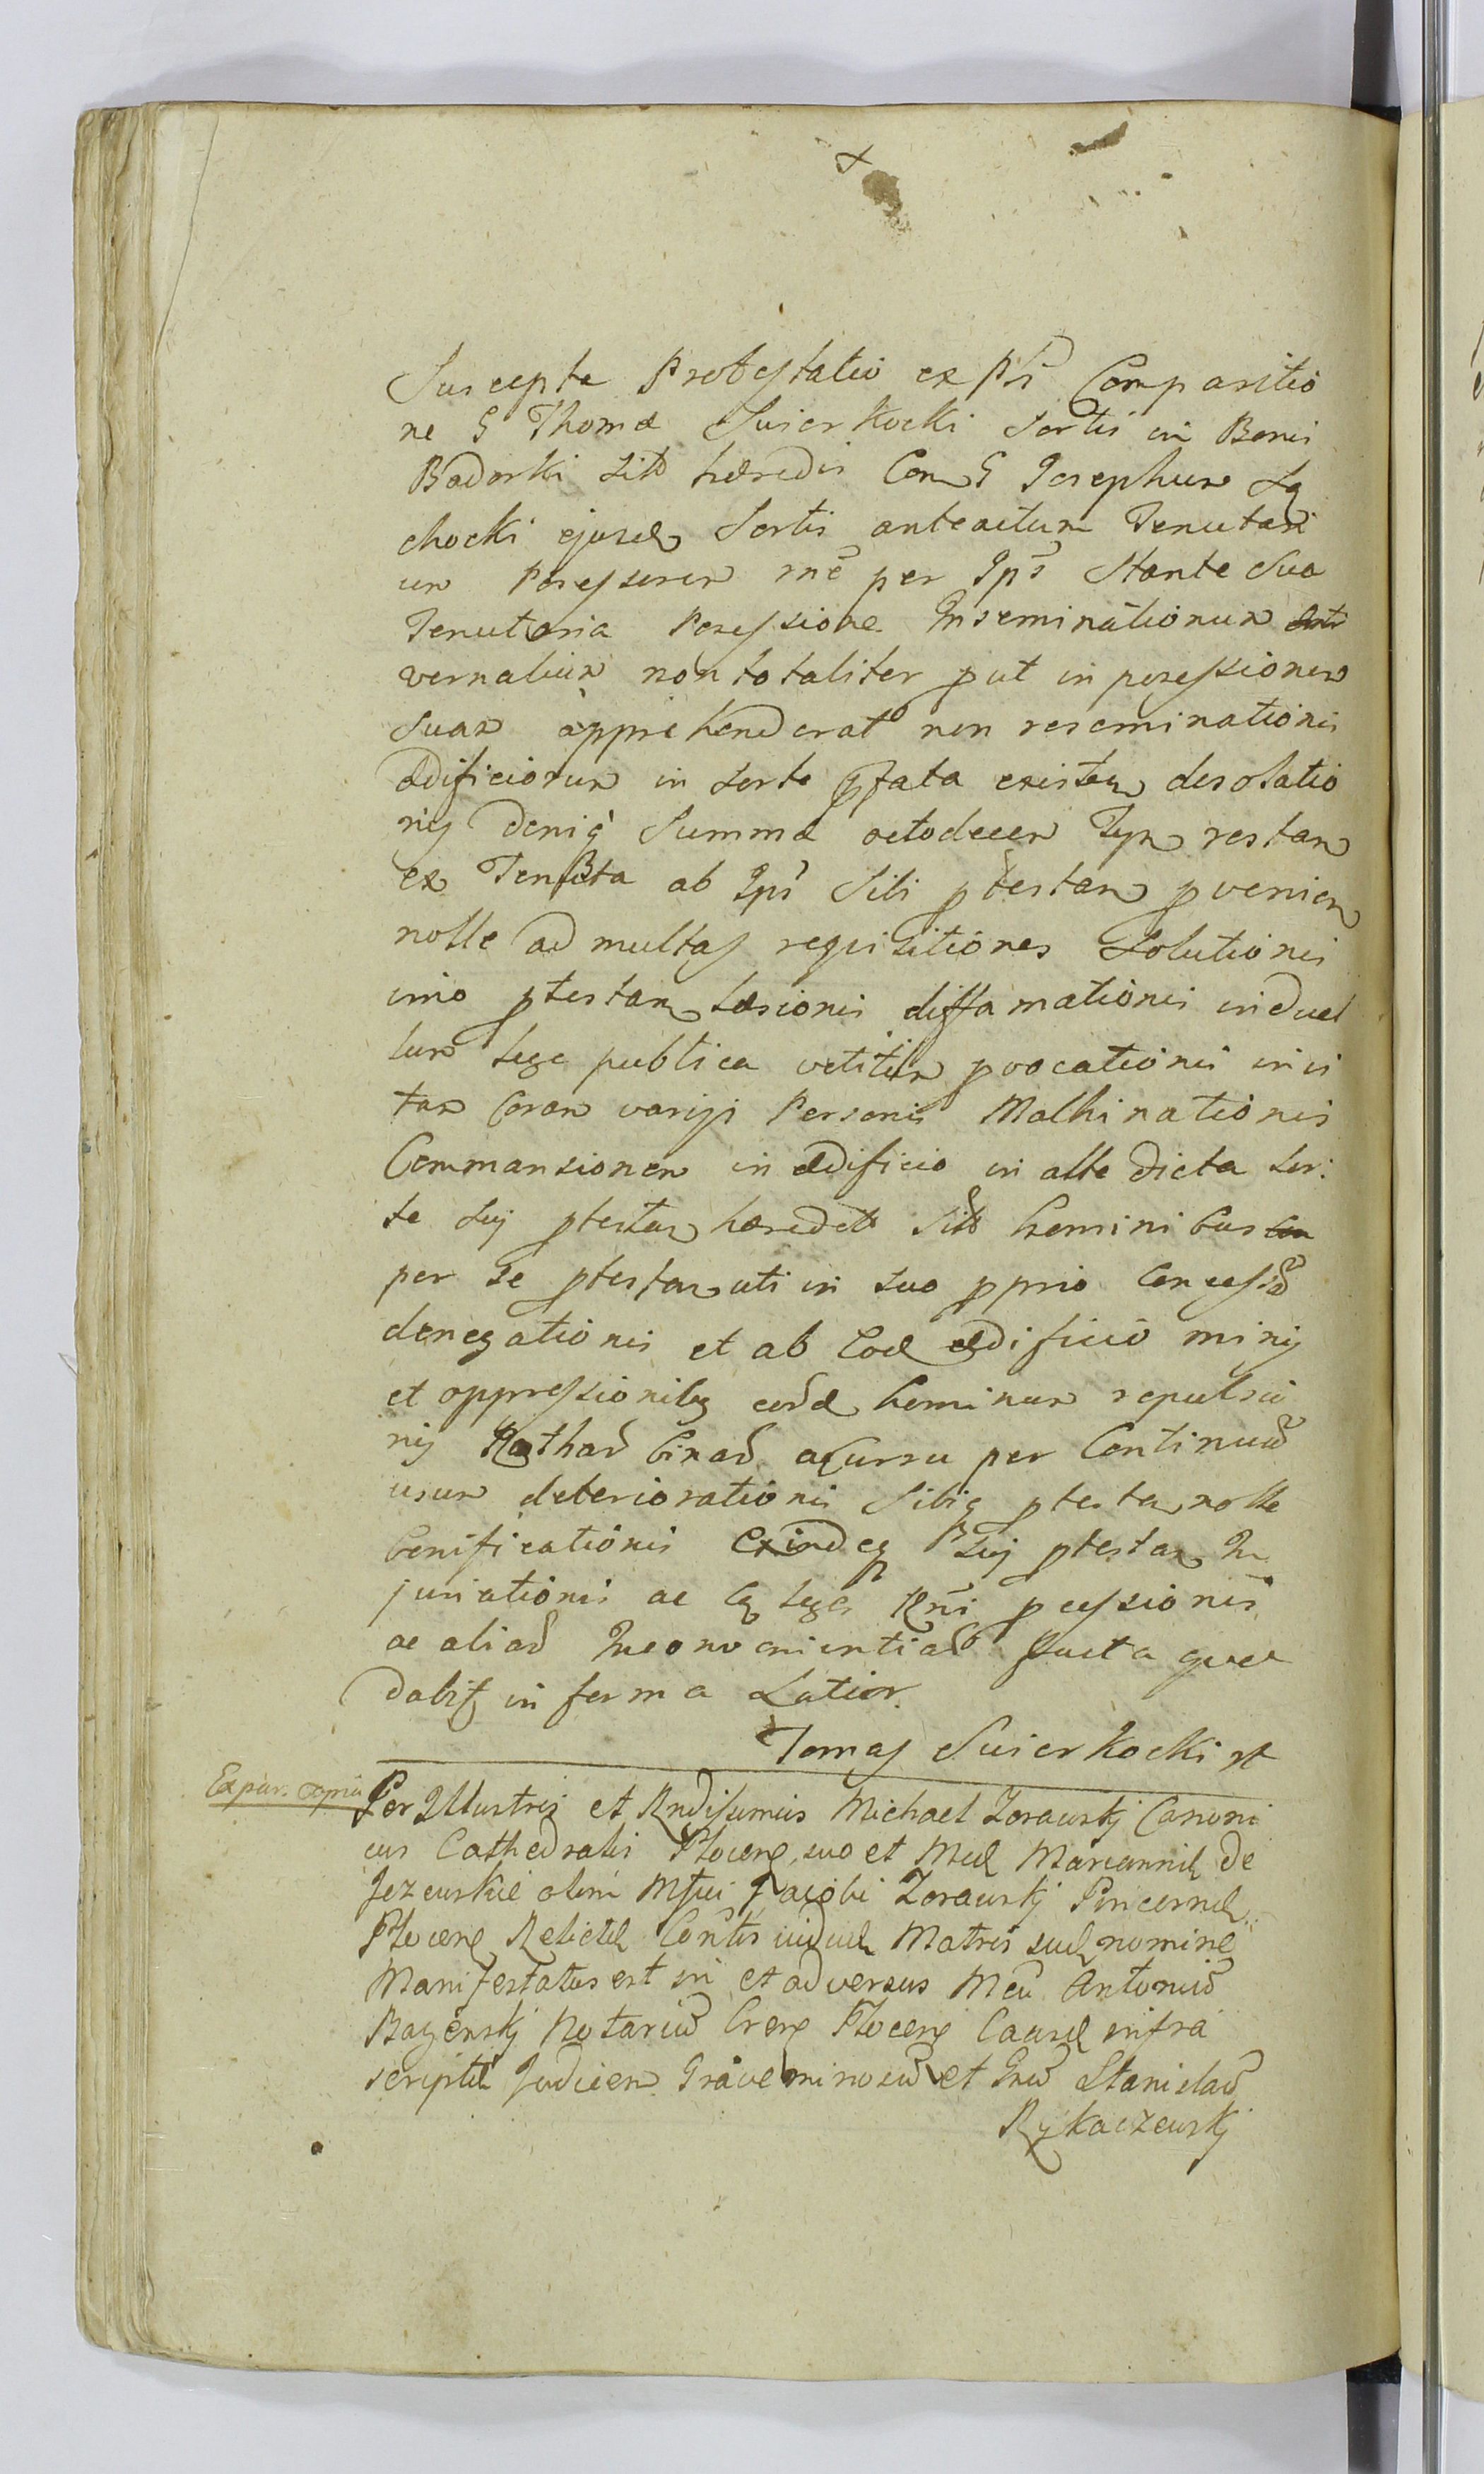 Suscepta Protestatio ex psĩ Comparitio
ne G Thomæ Suierkocki Sortis in Bonis
Badorki sitt hæredis Con G Josephum La
chocki ejusd Sortis anteactum Tenutari
um Possessorem rnē per Ips Stante Sua
Tenutoria Possessione Inseminationum
vernalium non totaliter put in possessionem
Suam apprehenderat non reseminationis
ædificiorum in sorte pfata existen desolatio
nis deniq Summæ octodecem Tyn restan
ex Tenuta ab Ips Sibi ptestan pvenien
nolle ad multas requisitiones Solutionis
imo ptestan læsionis diffamationis in duel
lum Lege publica vetitum pvocationis invi
tan Coram varijs Personis Malhinationis
Commansionem in ædificio in alte dicta Sor:
te Suj ptestan hæredett sitt hominibus
per Se ptestan uti in suo pprio Concess
denegationis et ab Eod ædificio minis
et oppressionibq eord hominum repulsio
nis Rothar binar a Cursu per Continuū
usum deteriorationis Sibiq ptestan nolle
bonificationis Exindeq Suj ptestan In
juriationis ac Cq leges Rnĩ pcessionis
ac aliar Inconvenientiar juxta quæ
dabit in forma Latior
Tomas Suierkocki rt
Expar. copia
Per Illustris et Rndissimus Michael Zorawskj Canoni
cus Cathedralis Plocen, suo et Mcæ Mariannæ de
Jezewskie olim Mfci Jacobi Zorawskj Pincernæ
Plocen Relictæ Contis viduæ Matris suæ nomine
Manifestatus est in et adversus Mcū Antoniū
Bazenskj Notariū Cren Plocen Causæ infra
scriptæ Judicem Graveminosū et Gnū Stanislaū
Rykaczewskj